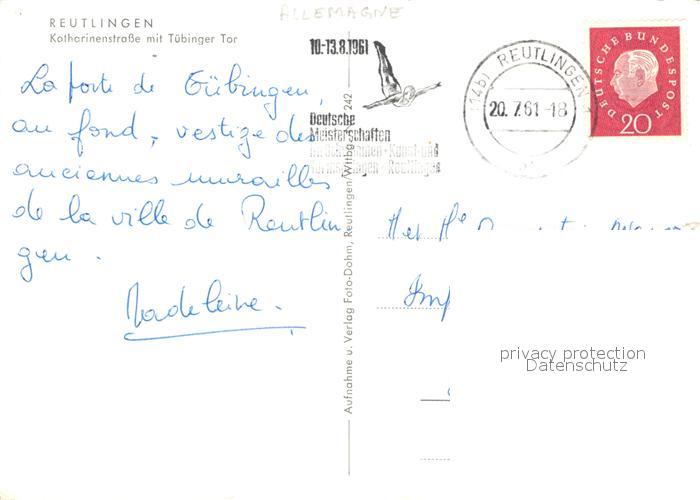 ALLEMAGNE
REUTLINGEN
Katharinenstraße mit Tübinger Tor
La porte de Tübingen,
au fond, vestige des
anciennes murailles
de la ville de Reutlin
gen.
Madeleine.
10.-13.8.1961
Deutsche
Meisterschaften
(14b) REUTLINGEN
20.7.61-18
DEUTSCHE BUNDESPOST
20
Aufnahme u. Verlag Foto-Dohm, Reutlingen/Wttbg. 242
M et Me
privacy protection
Datenschutz